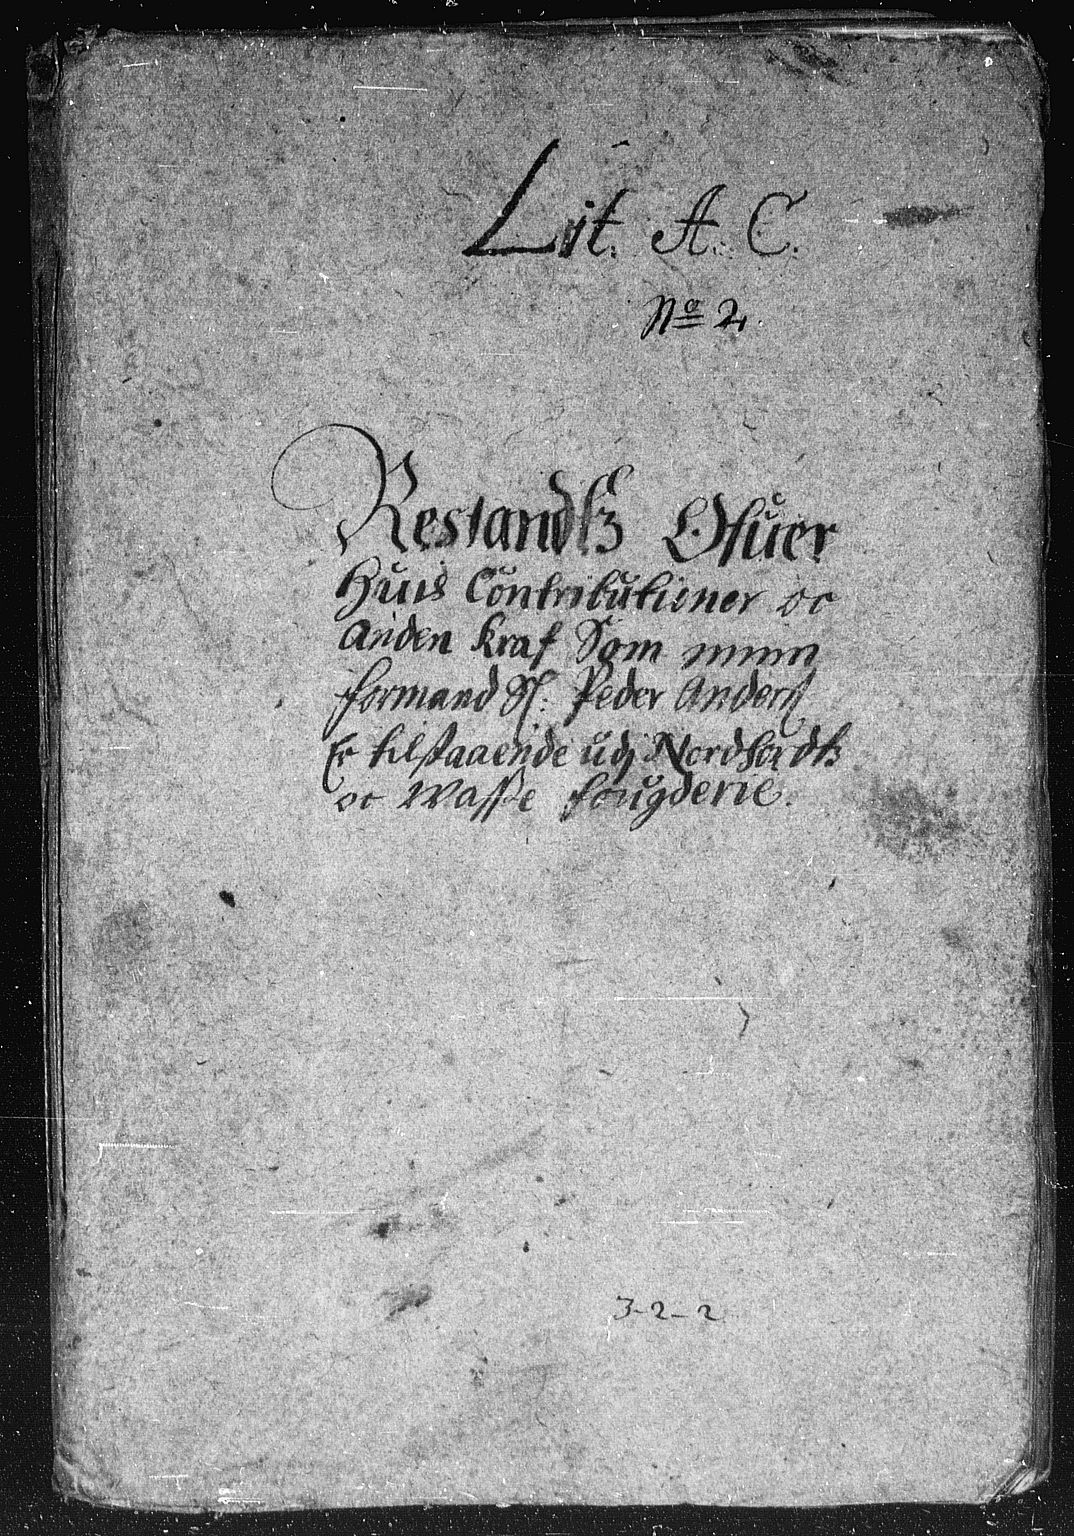 Lit. A. C.
No 2.
Restandtz Ofuer
Huis Contributioner oc
Anden kraf Som minn
formand Sl: Peder Anderß
Er tilstaaende udj Nordhordtz
oc Wasse fougderie.
3-2-2